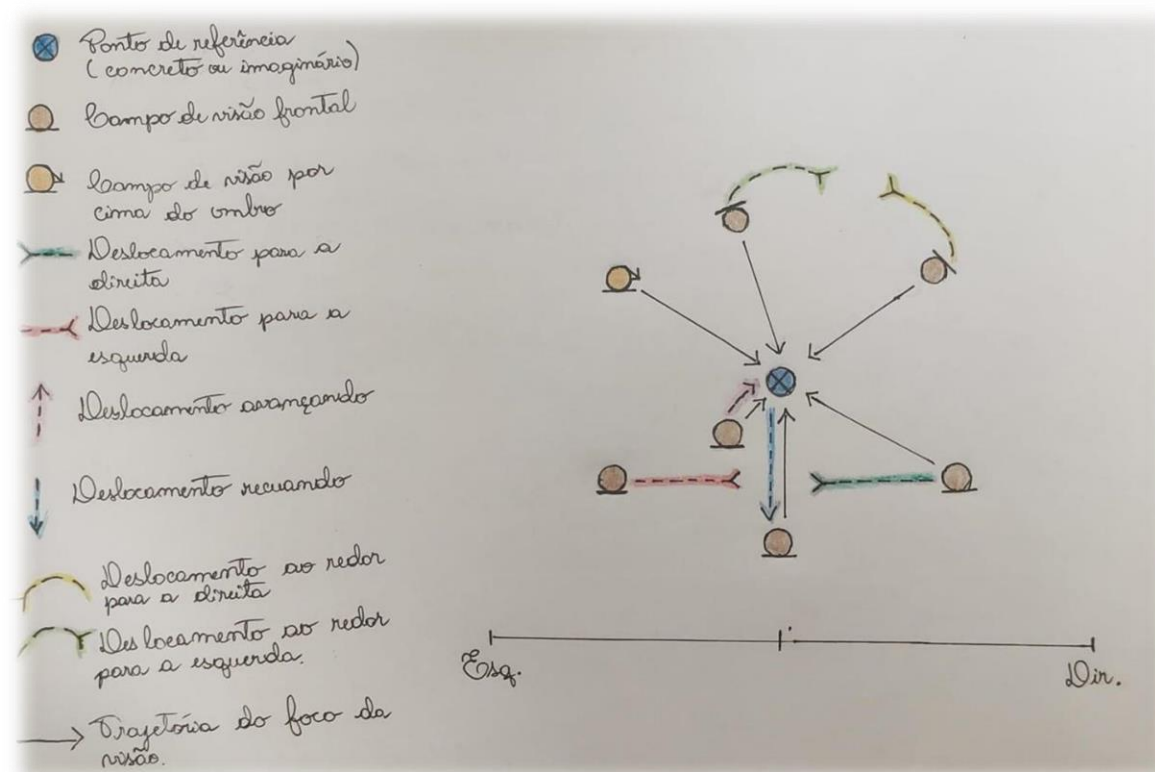 Ponto de referência
(concreto ou imaginário)
Campo de visão frontal
Campo de visão por
cima do ombro
Deslocamento para a
direita
Deslocamento para a
esquerda
Deslocamento avançando
Deslocamento recuando
Deslocamento ao redor
para a direita
Deslocamento ao redor
para a esquerda.
Trajetória do foco da
visão.
Esq.
Dir.